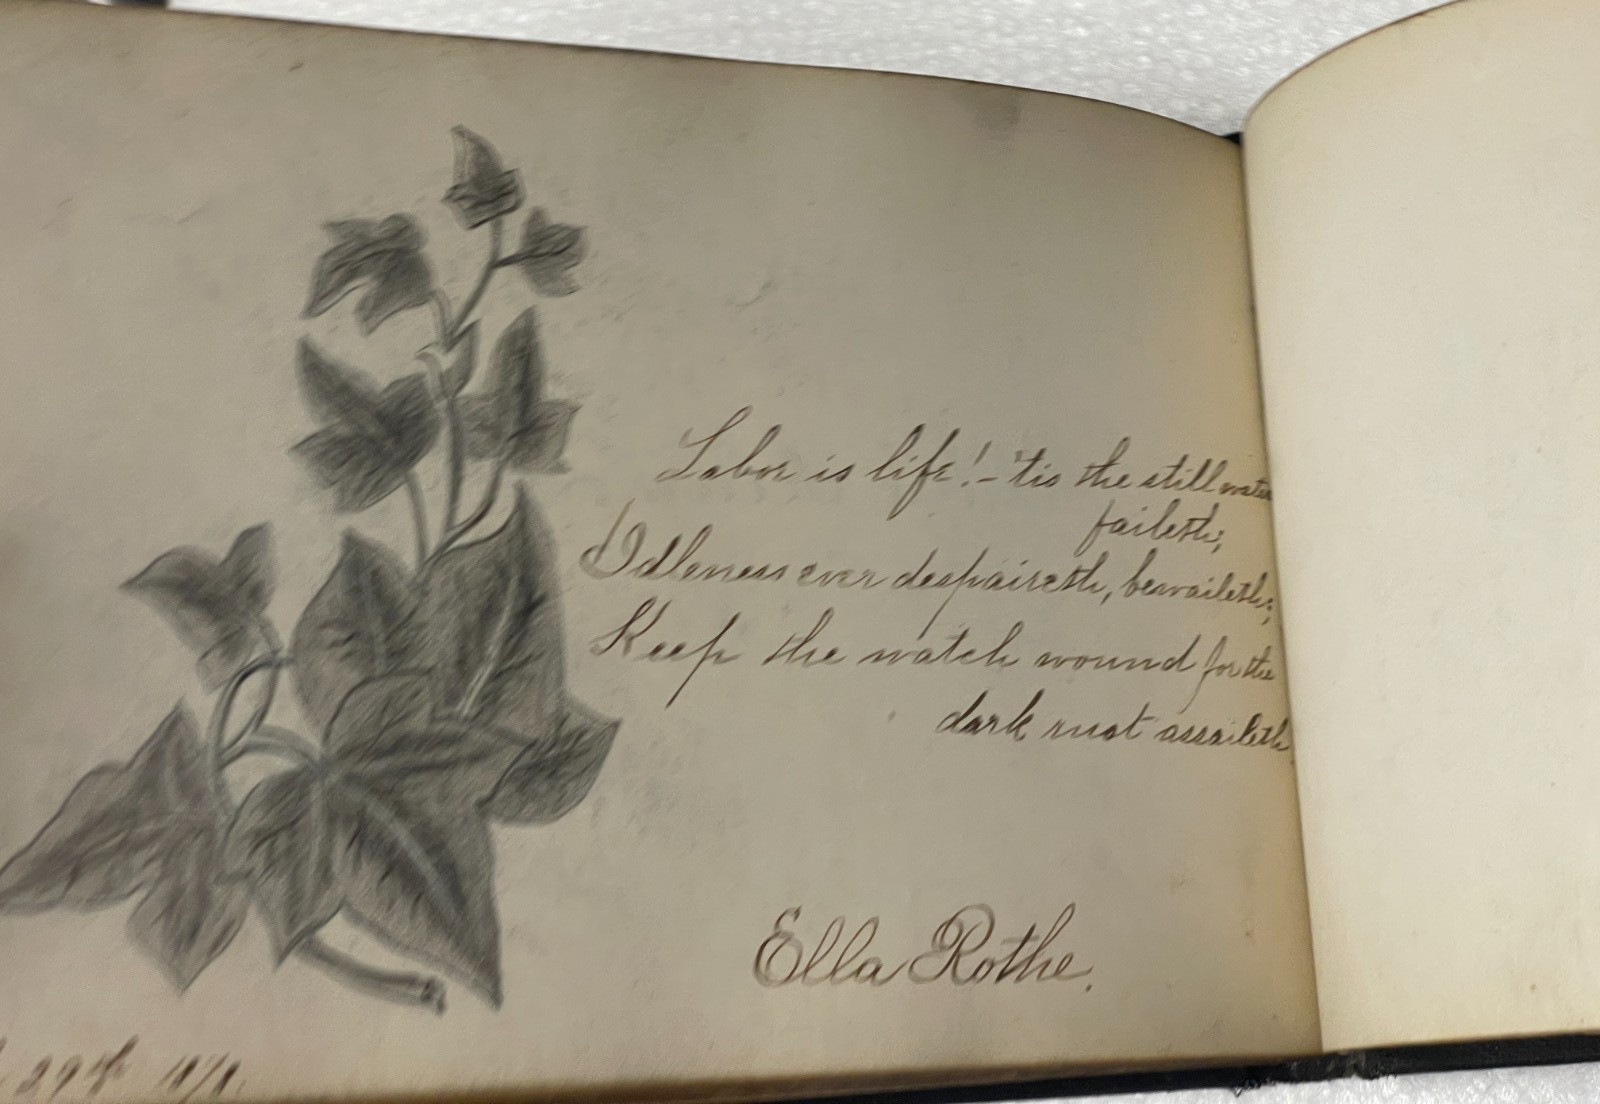 Labor is life! – 'tis the still water
faileth;
Idleness ever despaireth, bewaileth;
Keep the watch wound for the
dark rust assaileth
Ella Rothe.
29th